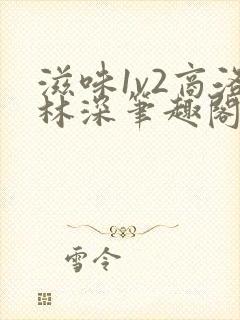 滋味1v2高洛
林深笔趣阁
雪令